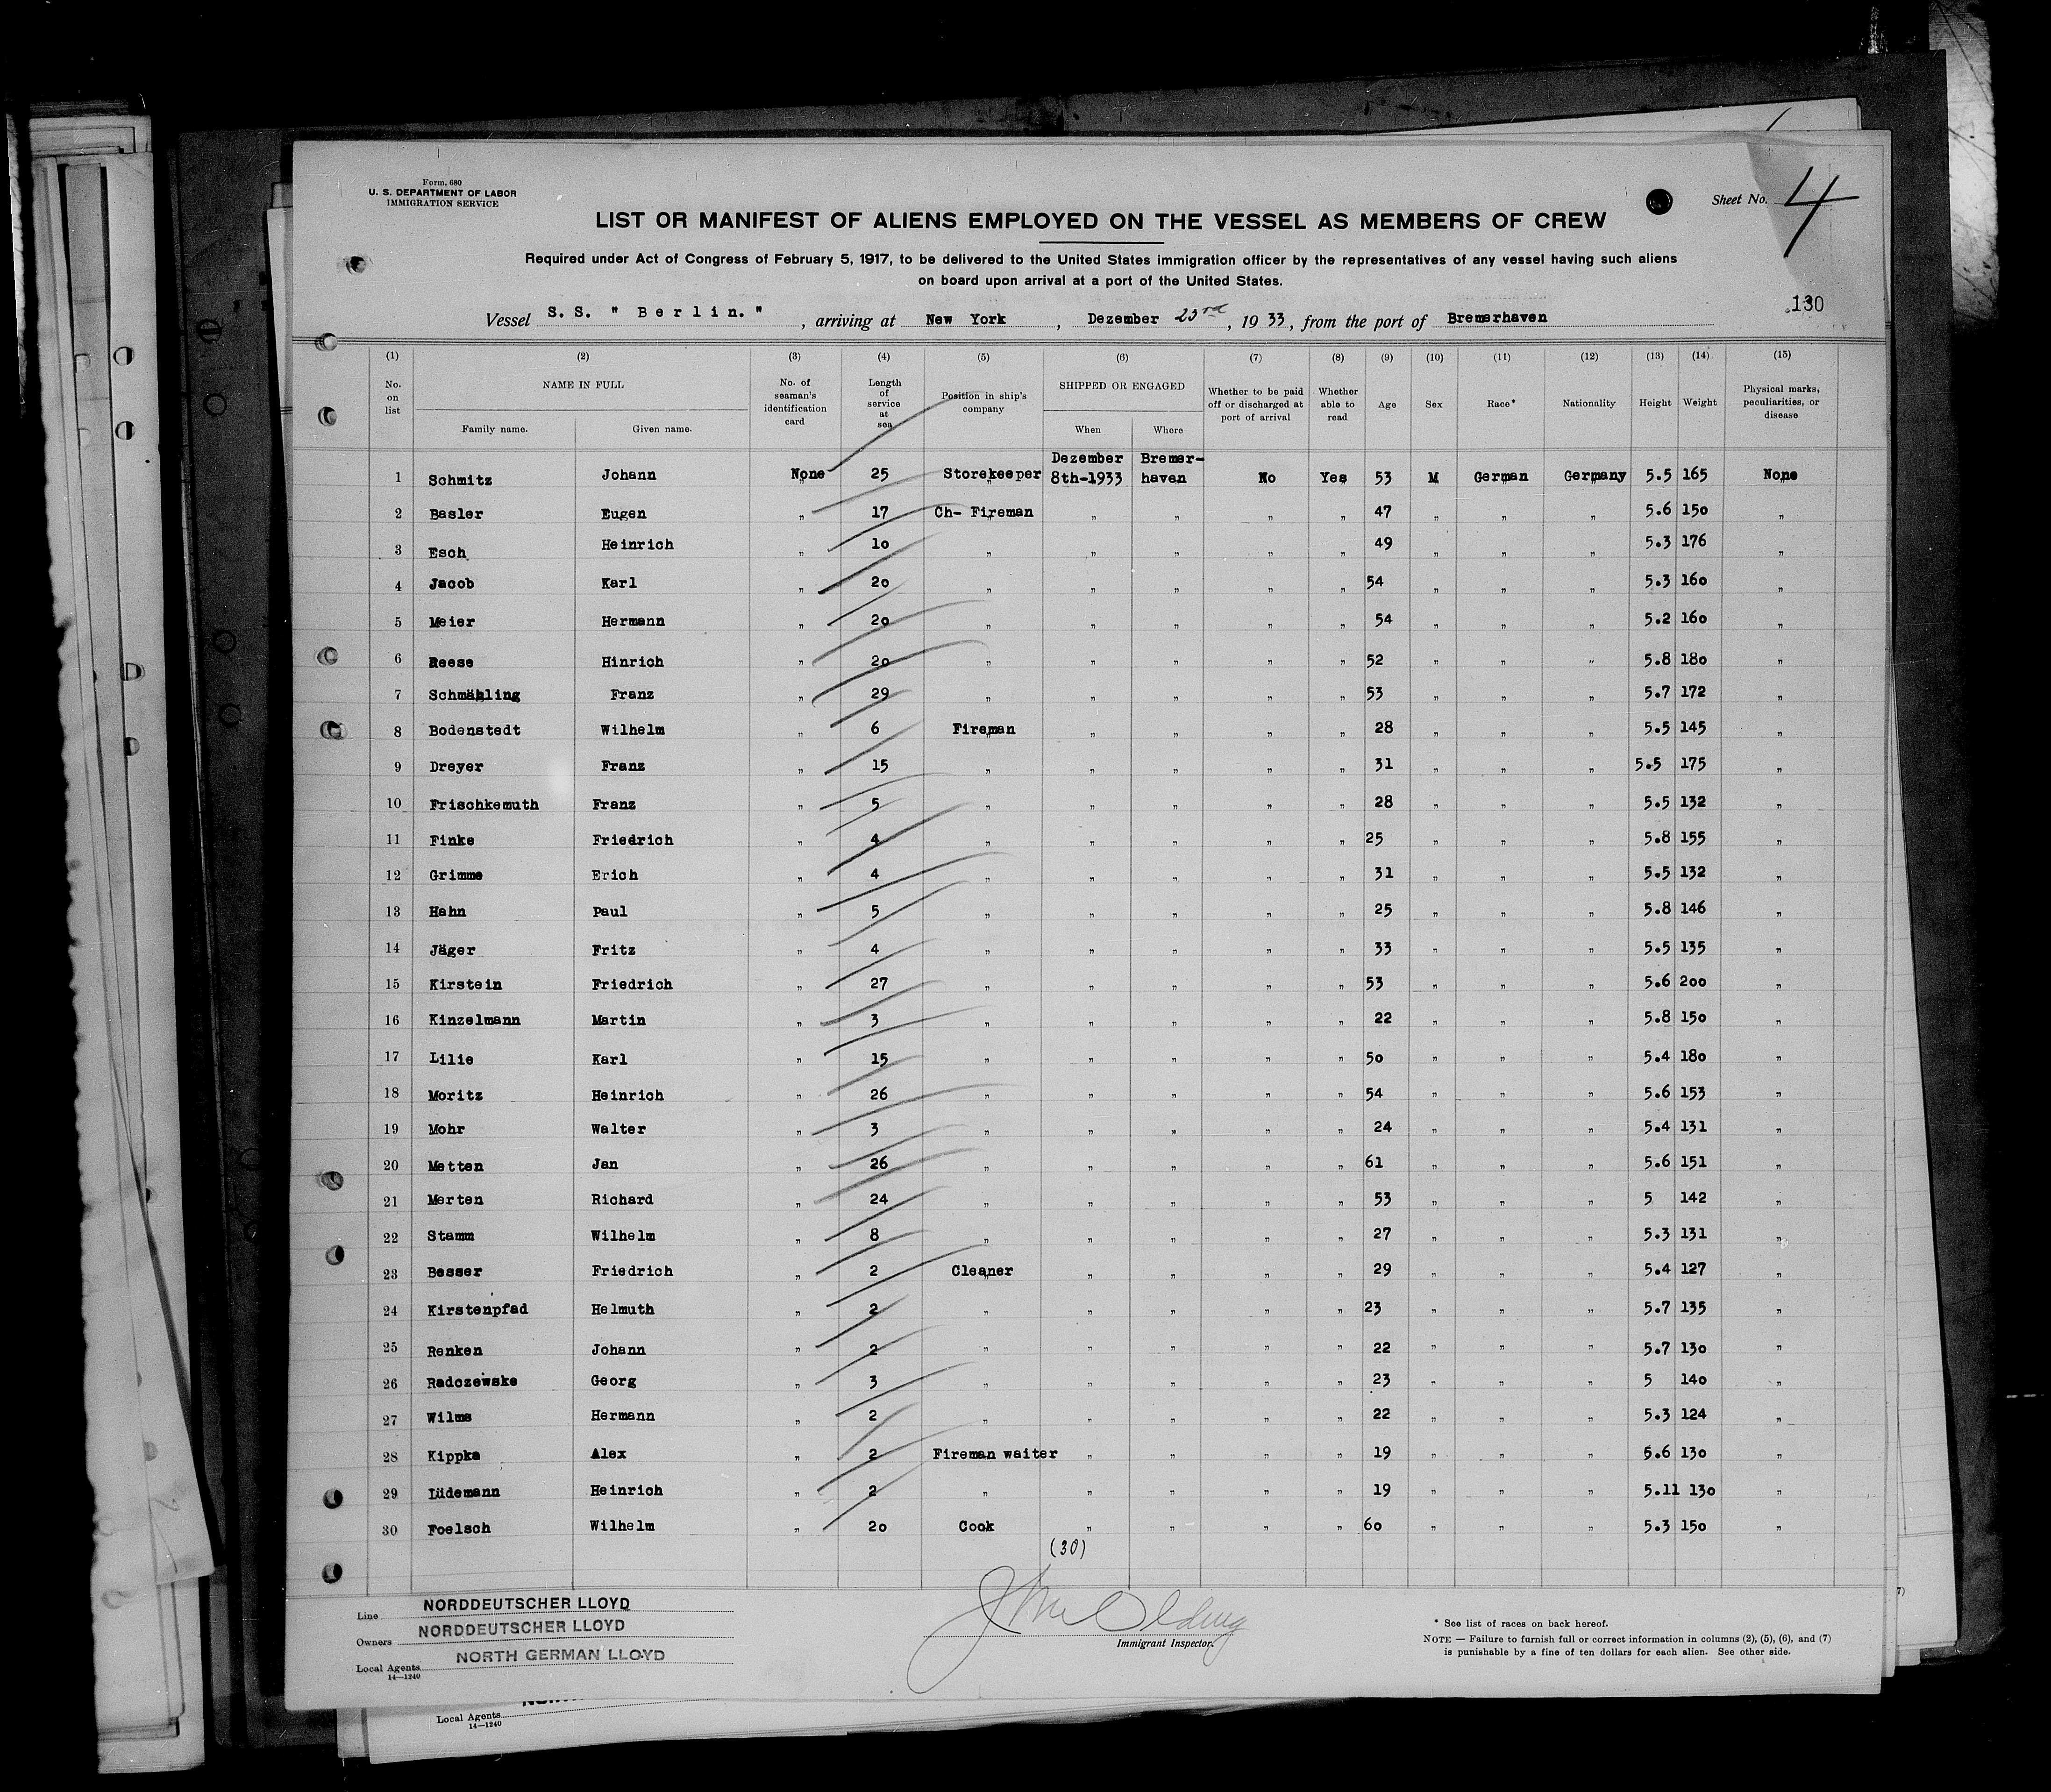 Form. 680
U. S. DEPARTMENT OF LABOR
IMMIGRATION SERVICE
Sheet No. 4
LIST OR MANIFEST OF ALIENS EMPLOYED ON THE VESSEL AS MEMBERS OF CREW
Required under Act of Congress of February 5, 1917, to be delivered to the United States immigration officer by the representatives of any vessel having such aliens
on board upon arrival at a port of the United States.
130
Vessel S. S. " B e r l i n. " , arriving at New York , Dezember 23rd , 1933, from the port of Bremerhaven
(1) (2) (3) (4) (5) (6) (7) (8) (9) (10) (11) (12) (13) (14) (15)
No. on list NAME IN FULL Family name. Given name. No. of seaman's identification card Length of service at sea Position in ship's company SHIPPED OR ENGAGED When Where Whether to be paid off or discharged at port of arrival Whether able to read Age Sex Race* Nationality Height Weight Physical marks, peculiarities, or disease
1 Schmitz Johann None 25 Storekeeper Dezember 8th-1933 Bremer-haven No Yes 53 M German Germany 5.5 165 None
2 Basler Eugen " 17 Ch- Fireman " " " " 47 " " " 5.6 150 "
3 Esch Heinrich " 10 " " " " " 49 " " " 5.3 176 "
4 Jacob Karl " 20 " " " " " 54 " " " 5.3 160 "
5 Meier Hermann " 20 " " " " " 54 " " " 5.2 160 "
6 Reese Hinrich " 20 " " " " " 52 " " " 5.8 180 "
7 Schmähling Franz " 29 " " " " " 53 " " " 5.7 172 "
8 Bodenstedt Wilhelm " 6 Fireman " " " " 28 " " " 5.5 145 "
9 Dreyer Franz " 15 " " " " " 31 " " " 5.5 175 "
10 Frischkemuth Franz " 5 " " " " " 28 " " " 5.5 132 "
11 Finke Friedrich " 4 " " " " " 25 " " " 5.8 155 "
12 Grimme Erich " 4 " " " " " 31 " " " 5.5 132 "
13 Hahn Paul " 5 " " " " " 25 " " " 5.8 146 "
14 Jäger Fritz " 4 " " " " " 33 " " " 5.5 135 "
15 Kirstein Friedrich " 27 " " " " " 53 " " " 5.6 200 "
16 Kinzelmann Martin " 3 " " " " " 22 " " " 5.8 150 "
17 Lilie Karl " 15 " " " " " 50 " " " 5.4 180 "
18 Moritz Heinrich " 26 " " " " " 54 " " " 5.6 153 "
19 Mohr Walter " 3 " " " " " 24 " " " 5.4 131 "
20 Metten Jan " 26 " " " " " 61 " " " 5.6 151 "
21 Merten Richard " 24 " " " " " 53 " " " 5 142 "
22 Stamm Wilhelm " 8 " " " " " 27 " " " 5.3 131 "
23 Besser Friedrich " 2 Cleaner " " " " 29 " " " 5.4 127 "
24 Kirstenpfad Helmuth " 2 " " " " " 23 " " " 5.7 135 "
25 Renken Johann " 2 " " " " " 22 " " " 5.7 130 "
26 Radczewske Georg " 3 " " " " " 23 " " " 5 140 "
27 Wilms Hermann " 2 " " " " " 22 " " " 5.3 124 "
28 Kippka Alex " 2 Fireman waiter " " " " 19 " " " 5.6 130 "
29 Lüdemann Heinrich " 2 " " " " " 19 " " " 5.11 130 "
30 Foelsch Wilhelm " 20 Cook " " " " 60 " " " 5.3 150 "
(30)
Line NORDDEUTSCHER LLOYD
Owners NORDDEUTSCHER LLOYD
Local Agents NORTH GERMAN LLOYD
14—1240
Immigrant Inspector.
* See list of races on back hereof.
NOTE — Failure to furnish full or correct information in columns (2), (5), (6), and (7)
is punishable by a fine of ten dollars for each alien. See other side.
Local Agents
14—1240